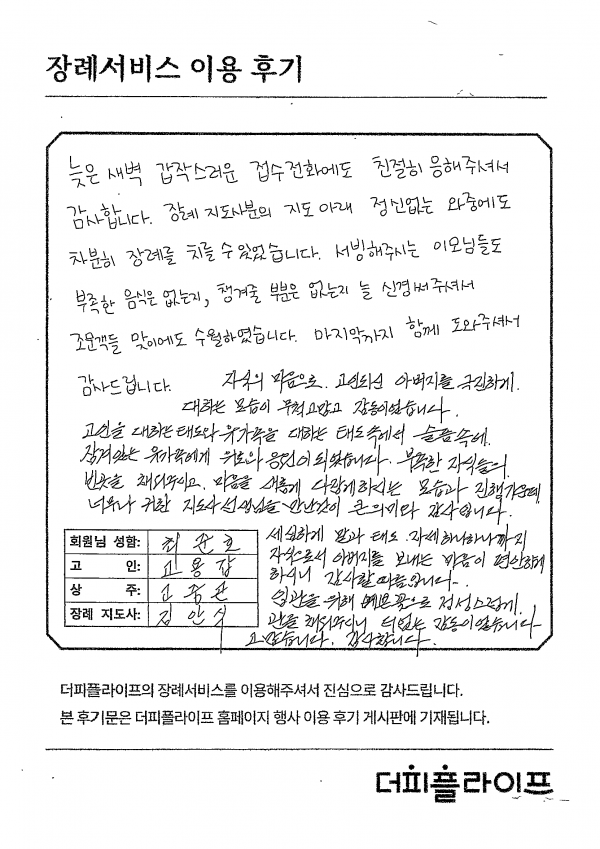 장례서비스 이용 후기
늦은 새벽 갑작스러운 접수전화에도 친절히 응해주셔서
감사합니다. 장례 지도사분의 지도 아래 정신없는 와중에도
차분히 장례를 치를 수 있었습니다. 서빙해주시는 이모님들도
부족한 음식은 없는지, 챙겨줄 부분은 없는지 늘 신경써주셔서
조문객들 맞이에도 수월하였습니다. 마지막까지 함께 도와주셔서
감사드립니다. 자식의 마음으로. 고인되신 아버지를 극진하게.
대하는 모습이 무척고맙고 감동이었습니다.
고인을 대하는태도와 유가족을 대하는 태도속에서 슬픔속에.
잠겨있는 유가족에게 위로와 응원이되었습니다. 부족한 자식들의
빈곳을 채워주시고. 마음을 새롭게 다잡게하시는 모습과 진행가운데
너무나 귀한 지도사선생님을 만난것이 큰의미라 감사입니다.
세심하게 말과 태도. 자세하나하나까지
자식으로서 아버지를 보내는 마음이 편안하게
하시니 감사할따름입니다.
입관을 위해 예쁜꽃으로 정성스럽게.
관을 채워주시니 더없는 감동이었습니다
고맙습니다. 감사합니다.
회원님 성함: 최윤호
고 인: 고용갑
상 주:
장례 지도사: 김안식
더피플라이프의 장례서비스를 이용해주셔서 진심으로 감사드립니다.
본 후기문은 더피플라이프 홈페이지 행사 이용 후기 게시판에 기재됩니다.
더피플라이프